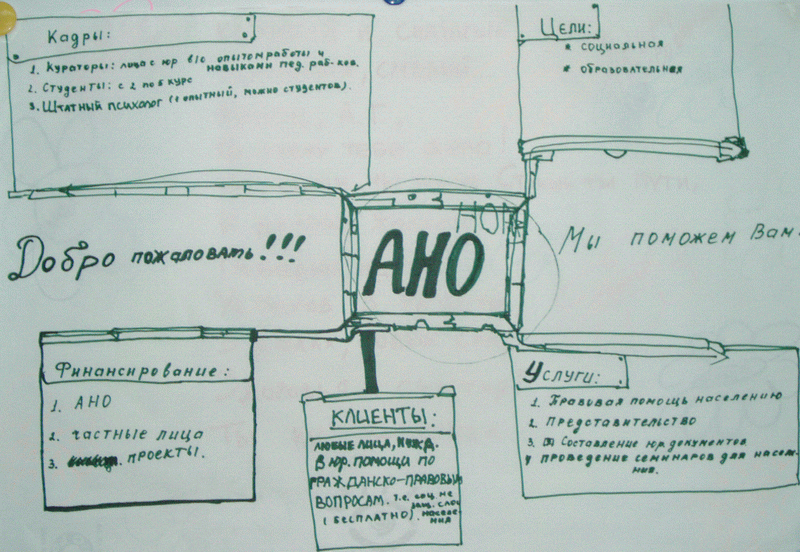 Кадры:
1. Кураторы: лица с юр в/о опытом работы и
навыками пед. раб-ков.
2. Студенты: с 2 по 5 курс
3. Штатный психолог (опытный, можно студентов).
Цели:
* социальная
* образовательная
Добро пожаловать!!!
НОК
АНО
Мы поможем Вам
Финансирование:
1. АНО
2. частные лица
3. проекты.
КЛИЕНТЫ:
ЛЮБЫЕ ЛИЦА, НУЖД.
В ЮР. ПОМОЩИ ПО
ГРАЖДАНСКО-ПРАВОВЫМ
ВОПРОСАМ. т.е. соц. не
защ. слои
(БЕСПЛАТНО). населе-
ния
Услуги:
1. Правовая помощь населению
2. Представительство
3. Составление юр. документов
4 проведение семинаров для населе-
ния.